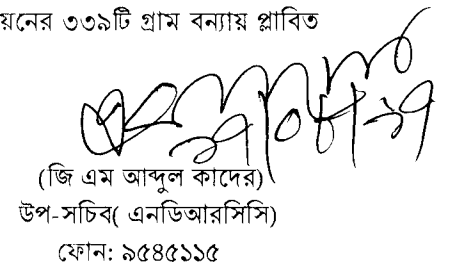 য়নের ৩৩৯টি গ্রাম বন্যায় প্লাবিত
(জি এম আব্দুল কাদের)
উপ-সচিব( এনডিআরসিসি)
ফোন: ৯৫৪৫১১৫